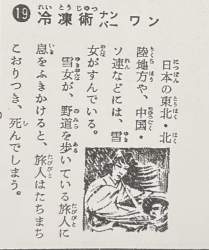 ⑲冷凍術ナンバーワン
日本の東北・北
陸地方や、中国・
ソ連などには、雪
女がすんでいる。
雪女が、野道を歩いている旅人に
息をふきかけると、旅人はたちまち
こおりつき、死んでしまう。